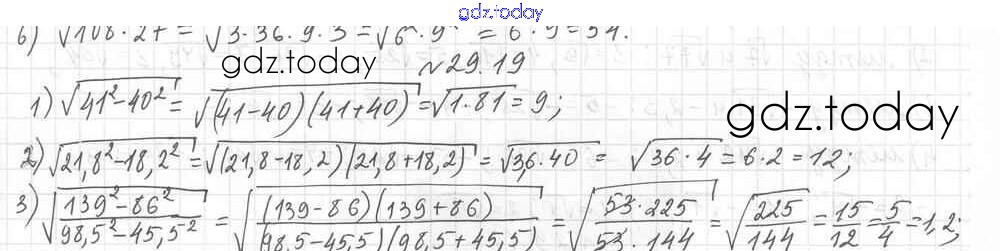 gdz.today
6) √108·27 = √3·36·9·3 = √6²·9² = 6·9 = 54.
gdz.today
№29.19
1) √41²-40² = √(41-40)(41+40) = √1·81 = 9;
gdz.today
2) √21,8²-18,2² = √(21,8-18,2)(21,8+18,2) = √3,6·40 = √36·4 = 6·2 = 12;
3) √139²-86²/98,5²-45,5² = √(139-86)(139+86)/(98,5-45,5)(98,5+45,5) = √53·225/53·144 = √225/144 = 15/12 = 5/4 = 1,2;